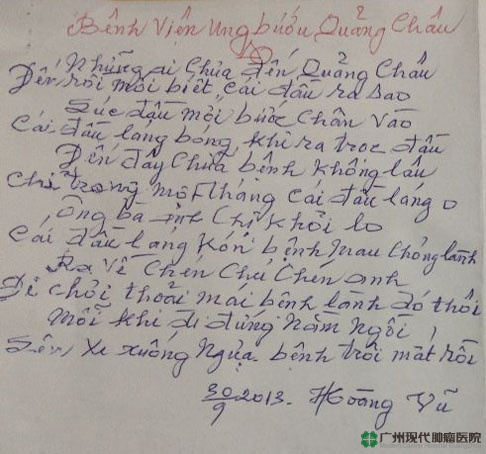 Bệnh Viện Ung bướu Quảng Châu
Những ai Chưa đến Quảng Châu
Đến rồi mới biết Cái đầu ra sao
Lúc đầu mới bước Chân vào
Cái đầu lang bóng, khi ra trọc đầu
Đến đây Chữa bệnh không lâu
Chỉ trong một tháng Cái đầu láng o
Ông bà Chị khỏi lo
Cái đầu láng bệnh mau Chóng lành
Ra về Chén Chú Chén anh
Đi chơi thoải mái bệnh lành đó thôi
Mỗi khi đi đứng Nằm Ngồi
Lên Xe xuống Ngựa bệnh trôi mất rồi
30/9 2013. Hoàng Vũ
广州现代肿瘤医院